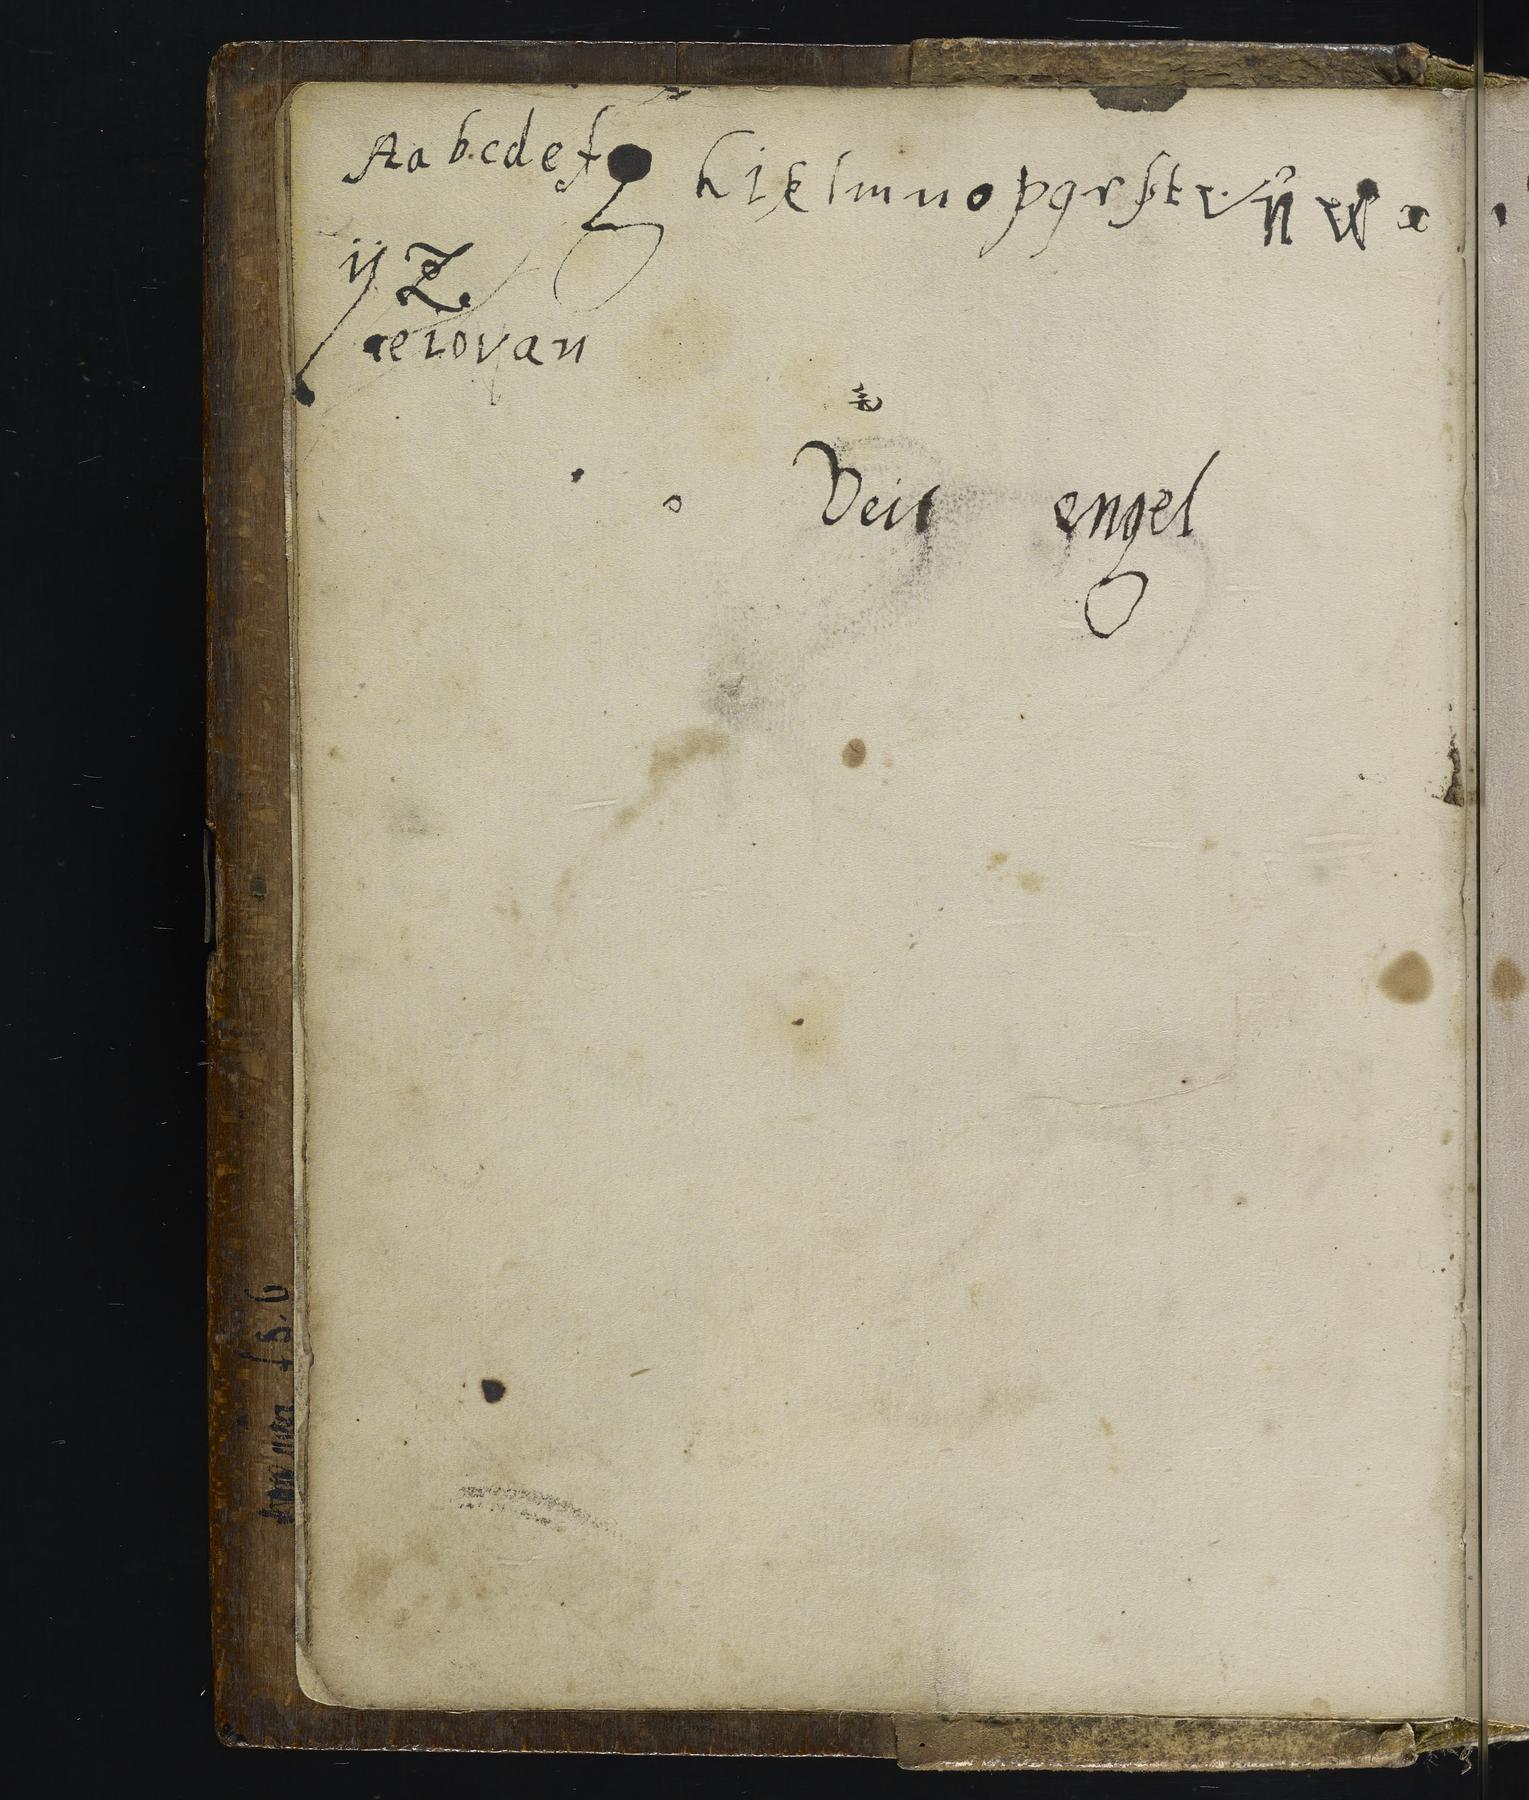 Aabcdefg hiklmnopqrſstvü w x
ÿ Z
aeiovan
Veit engel